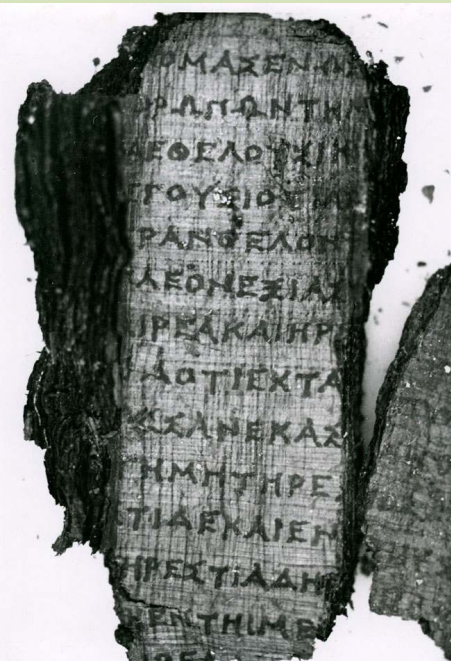 ΟΜΑΣΕΝΩ
ΡΩΠΩΝΤΗ
ΔΕΘΕΛΟΥΣΙΝ
ΕΓΟΥΣΙΟ
ΡΑΝΘΕΛΟΝ
ΛΕΟΝΕΞΙΑΣ
ΡΕΑΚΑΙΗΡ
ΔΟΤΙΕΚΤΑ
ΣΣΑΝΕΚΑΣ
ΗΜΗΤΗΡΕ
ΤΙΔΕΚΑΙΕΝ
ΗΡΕΣΤΙΑΔΗ
ΕΝΤΗΙΜΕ